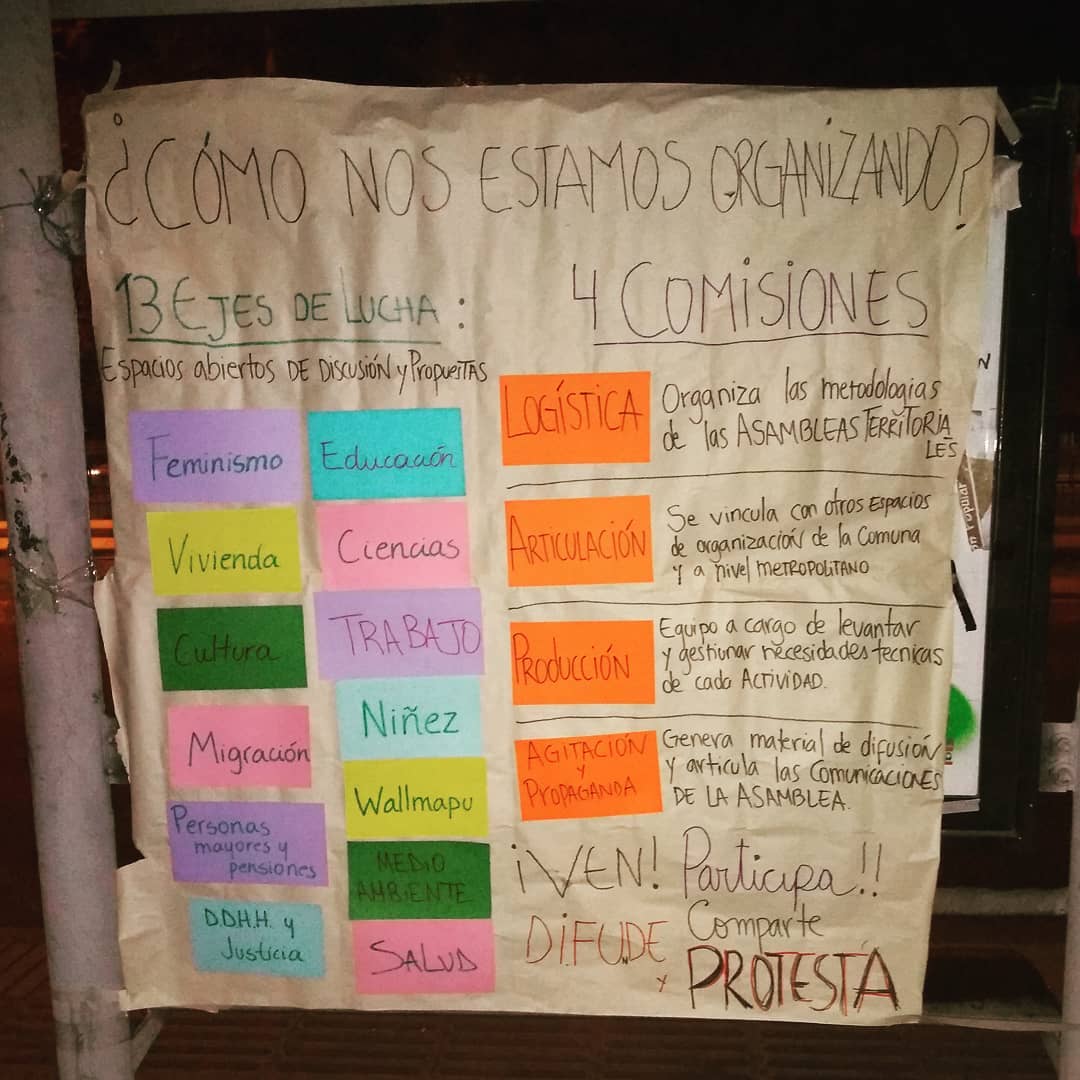 ¿CÓMO NOS ESTAMOS ORGANIZANDO?
13 EJES DE LUCHA :
ESPACIOS abiertos DE DISCUSIÓN y PROPUESTAS
Feminismo
Educación
Vivienda
Ciencias
Cultura
TRABAJO
Migración
Niñez
Personas
mayores y
pensiones
Wallmapu
MEDIO
AMBIENTE
D.D.H.H. y
Justicia
SALUD
4 COMISIONES
LOGÍSTICA
Organiza las metodologias
de las ASAMBLEAS TERRITORIA
LES
ARTICULACIÓN
Se vincula con otros ESPACIOS
de organización de la Comuna
y a nivel METROPOLITANO
PRODUCCIÓN
Equipo a cargo de levantar
y gestiunar necesidades tecnicas
de cada ACTIVIDAD.
AGITACIÓN
Y
PROPAGANDA
Genera material de difusión
y articula las Comunicaciones
DE LA ASAMBLEA.
¡VEN! Participa!!
DIFUNDE Comparte
y PROTESTA